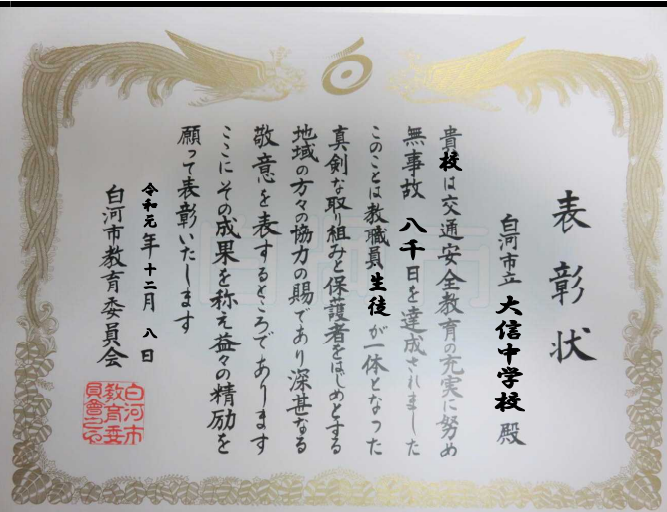 表彰状
白河市立 大信中学校 殿
貴校は交通安全教育の充実に努め
無事故 八千日を達成されました
このことは教職員生徒が一体となった
真剣な取り組みと保護者をはじめとする
地域の方々の協力の賜であり深甚なる
敬意を表するところであります
ここにその成果を称え益々の精励を
願って表彰いたします
令和元年十二月 八 日
白河市教育委員会
白河市
教育委
員會之印
白河市